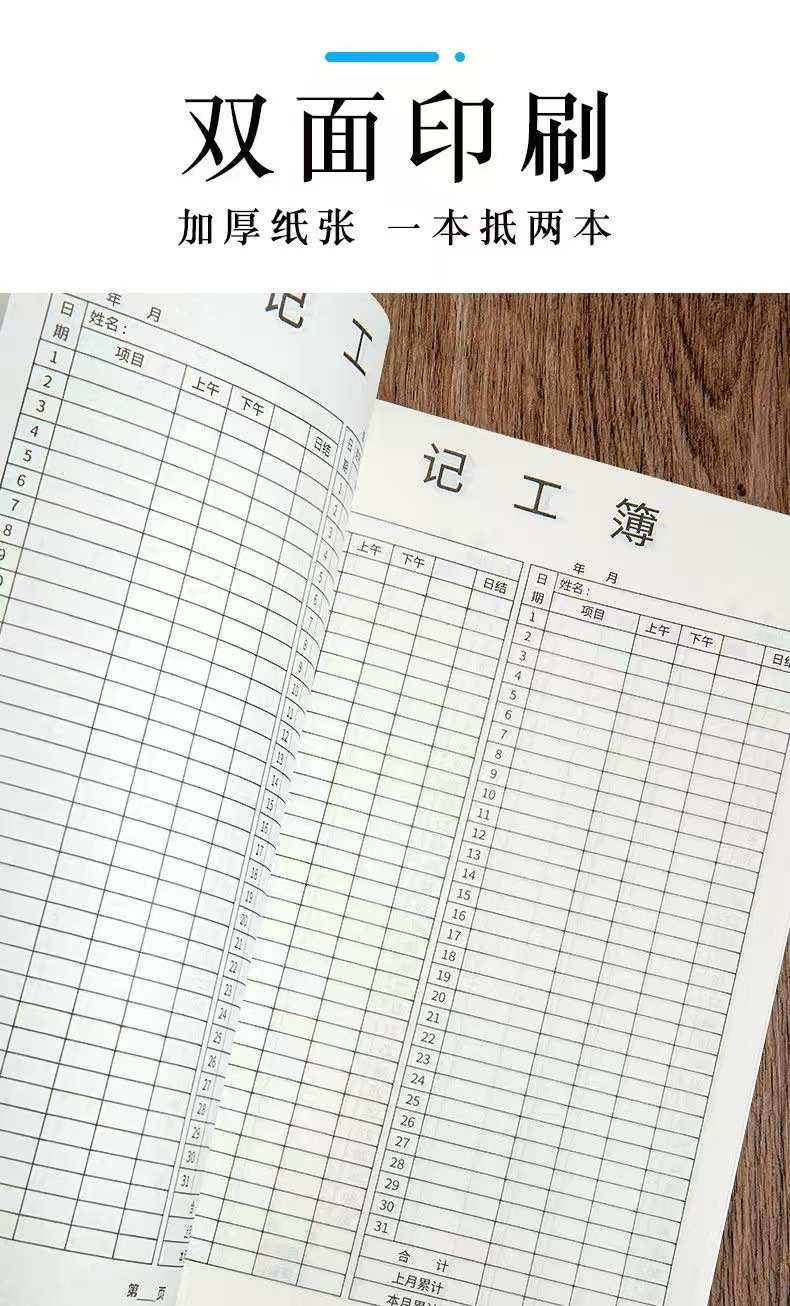 双面印刷
加厚纸张 一本抵两本
记工
年 月
日期
姓名：
项目 上午 下午 日结
1
2
3
4
5
6
7
8
9
日期
1
2
3
4
5
6
7
8
9
10
11
12
13
14
15
16
17
18
19
20
21
22
23
24
25
26
27
28
29
30
31
第__页
记工簿
上午 下午 日结
年 月
日期
姓名：
项目 上午 下午
1
2
3
4
5
6
7
8
9
10
11
12
13
14
15
16
17
18
19
20
21
22
23
24
25
26
27
28
29
30
31
合计
上月累计
本月累计